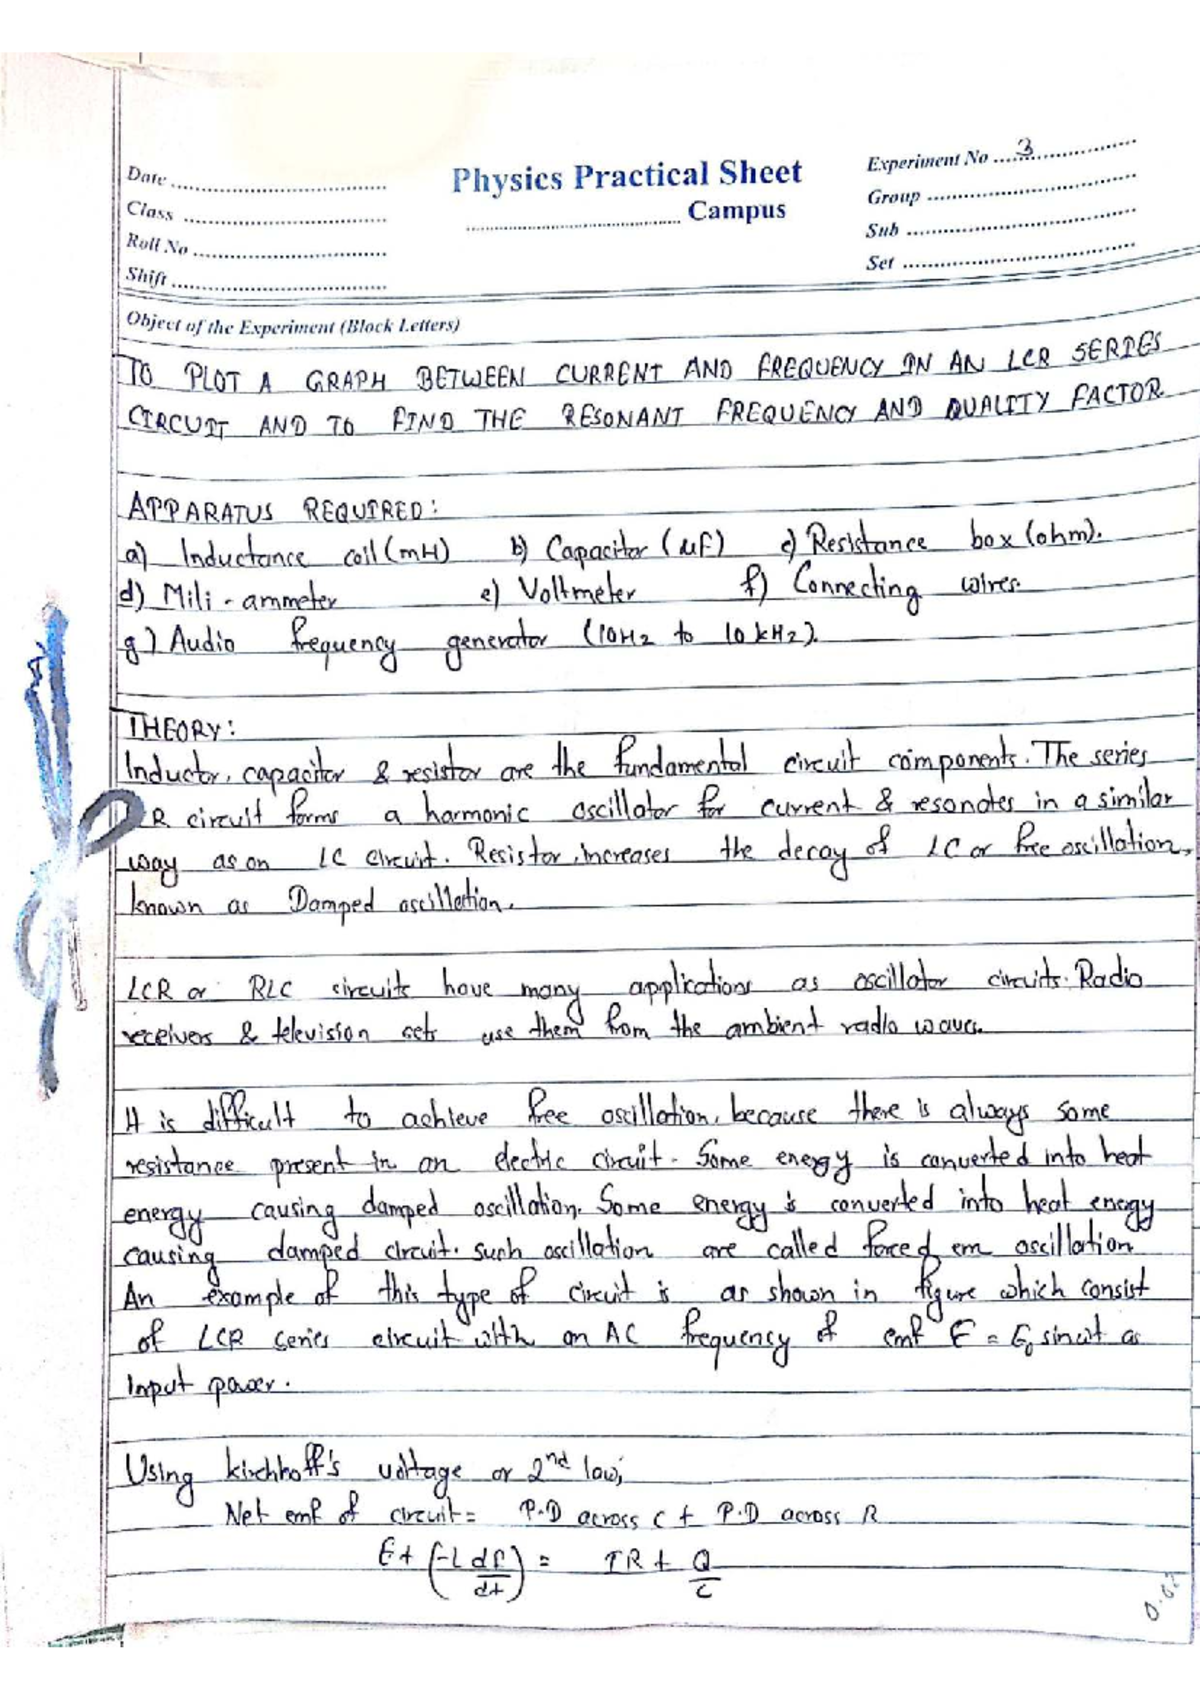 Date ..............................
Class ..............................
Roll No ..............................
Shift ..............................
Physics Practical Sheet
.............................. Campus
Experiment No ....3....................
Group ..............................
Sub ..............................
Set ..............................
Object of the Experiment (Block Letters)
TO PLOT A GRAPH BETWEEN CURRENT AND FREQUENCY IN AN LCR SERIES
CIRCUIT AND TO FIND THE RESONANT FREQUENCY AND QUALITY FACTOR
APPARATUS REQUIRED:
a) Inductance coil (mH) b) Capacitor (μF) c) Resistance box (ohm).
d) Mili-ammeter e) Voltmeter f) Connecting wires.
g) Audio frequency generator (10Hz to 10 kHz).
THEORY:
Inductor, capacitor & resistor are the fundamental circuit components. The series
R circuit forms a harmonic oscillator for current & resonates in a similar
way as an LC circuit. Resistor increases the decay of LC or free oscillation,
known as Damped oscillation.
LCR or RLC circuits have many applications as oscillator circuits. Radio
receivers & television sets use them from the ambient radio waves.
It is difficult to achieve free oscillation, because there is always some
resistance present in an electric circuit. Some energy is converted into heat
energy causing damped oscillation. Some energy is converted into heat energy
causing damped circuit. such oscillation are called forced em oscillation
An example of this type of circuit is as shown in figure which consist
of LCR series circuit with an AC frequency of emf E = E₀ sinωt as
Input power.
Using kirchhoff's voltage or 2nd law;
Net emf of circuit = P.D across C + P.D across R
E + (-L dI/dt) = IR + Q/C